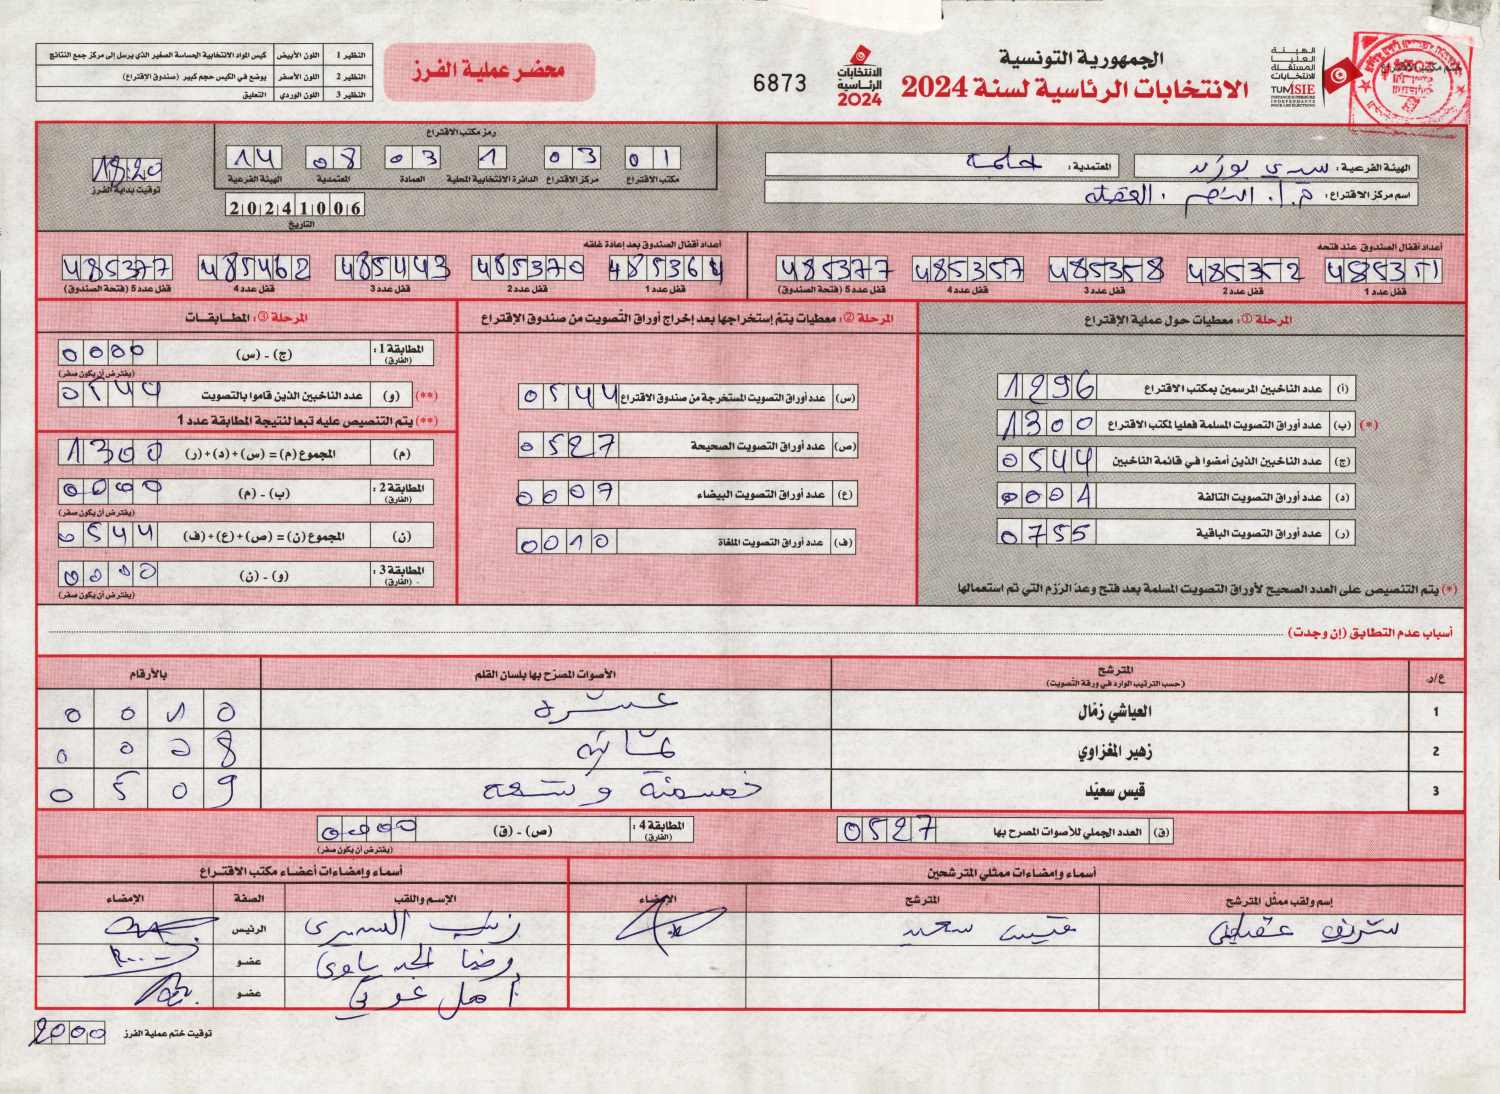 الجمهورية التونسية
الانتخابات الرئاسية لسنة 2024
الهيئة العليا المستقلة للانتخابات
الانتخابات الرئاسية 2024
6873
محضر عملية الفرز
النظير 1 اللون الأبيض كيس المواد الانتخابية الحساسة الصغير الذي يرسل إلى مركز جمع النتائج
النظير 2 اللون الأصفر يوضع في الكيس حجم كبير (صندوق الإقتراع)
النظير 3 اللون الوردي التعليق
الهيئة الفرعية: سيدي بوزيد المعتمدية:
اسم مركز الاقتراع:
رمز مكتب الاقتراع
01 03 1 03 08 14
مكتب الاقتراع مركز الاقتراع الدائرة الانتخابية المحلية العمادة المعتمدية الهيئة الفرعية
20241006
التاريخ
18:20
توقيت بداية الفرز
أعداد أقفال الصندوق عند فتحه
485351 485352 485358 485357 485377
قفل عدد 1 قفل عدد 2 قفل عدد 3 قفل عدد 4 قفل عدد 5 (فتحة الصندوق)
أعداد أقفال الصندوق بعد إعادة غلقه
485364 485370 485443 485462 485377
قفل عدد 1 قفل عدد 2 قفل عدد 3 قفل عدد 4 قفل عدد 5 (فتحة الصندوق)
المرحلة ①: معطيات حول عملية الإقتراع
(أ) عدد الناخبين المرسمين بمكتب الاقتراع 1296
(*) (ب) عدد أوراق التصويت المسلمة فعليا لمكتب الاقتراع 1300
(ج) عدد الناخبين الذين أمضوا في قائمة الناخبين 0544
(د) عدد أوراق التصويت التالفة 0001
(ر) عدد أوراق التصويت الباقية 0755
(*) يتم التنصيص على العدد الصحيح لأوراق التصويت المسلمة بعد فتح وعدّ الرّزم التي تم استعمالها
المرحلة ②: معطيات يتمّ إستخراجها بعد إخراج أوراق التّصويت من صندوق الإقتراع
(س) عدد أوراق التصويت المستخرجة من صندوق الاقتراع 0544
(ص) عدد أوراق التصويت الصحيحة 0527
(ع) عدد أوراق التصويت البيضاء 0007
(ف) عدد أوراق التصويت الملغاة 0010
المرحلة ③: المطابقات
المطابقة 1: (الفارق) (ج) - (س) 0000
(يفترض أن يكون صفر)
(**) (و) عدد الناخبين الذين قاموا بالتصويت 0544
(**) يتم التنصيص عليه تبعا لنتيجة المطابقة عدد 1
(م) المجموع (م) = (س) + (د) + (ر) 1300
المطابقة 2: (الفارق) (ب) - (م) 0000
(يفترض أن يكون صفر)
(ن) المجموع (ن) = (ص) + (ع) + (ف) 0544
المطابقة 3: - (الفارق) (و) - (ن) 0000
(يفترض أن يكون صفر)
أسباب عدم التطابق (إن وجدت)
ع/د المترشح (حسب الترتيب الوارد في ورقة التّصويت) الأصوات المصرّح بها بلسان القلم بالأرقام
1 العياشي زمّال عشرة 0010
2 زهير المغزاوي ثمانية 0008
3 قيس سعيّد خمسمئة وتسعة 0509
(ق) العدد الجملي للأصوات المصرح بها 0527
المطابقة 4: (الفارق) (ص) - (ق) 0000
(يفترض أن يكون صفر)
أسماء وإمضاءات ممثلي المترشحين
إسم ولقب ممثل المترشح المترشح الإمضاء
قيس سعيد
أسماء وإمضاءات أعضاء مكتب الاقتراع
الإسم واللقب الصفة الإمضاء
الرئيس
عضو
عضو
توقيت ختم عملية الفرز 2000